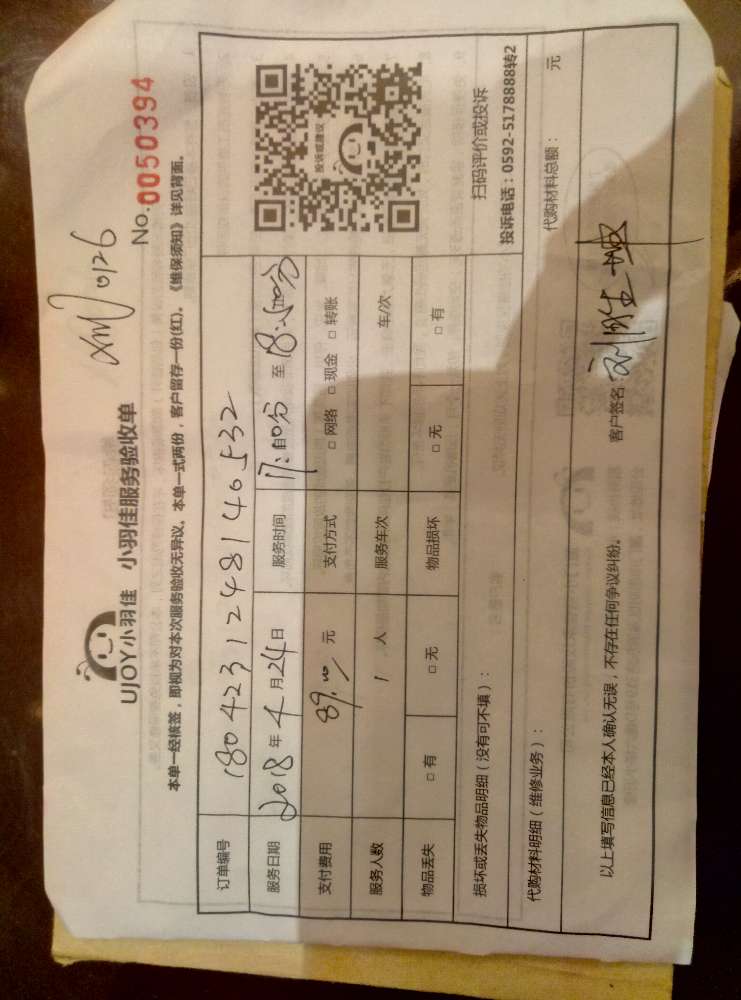 UJOY小羽佳 小羽佳服务验收单
xm 0126
No.0050394
本单一经核签，即视为对本次服务验收无异议。本单一式两份，客户留存一份(红)。《维保须知》详见背面。
订单编号 180423124814 0532
服务日期 2018 年 4 月 24 日 服务时间 17:自00分 至 18:00分
支付费用 89.00 元 支付方式 □ 网络 □ 现金 □ 转账
服务人数 1 人 服务车次 车/次
物品丢失 □ 有 □ 无 物品损坏 □ 无 □ 有
投诉或建议
扫码评价或投诉
投诉电话：0592-5178888转2
损坏或丢失物品明细（没有可不填）：
代购材料明细（维修业务）： 代购材料总额： 元
以上填写信息已经本人确认无误，不存在任何争议纠纷。 客户签名：